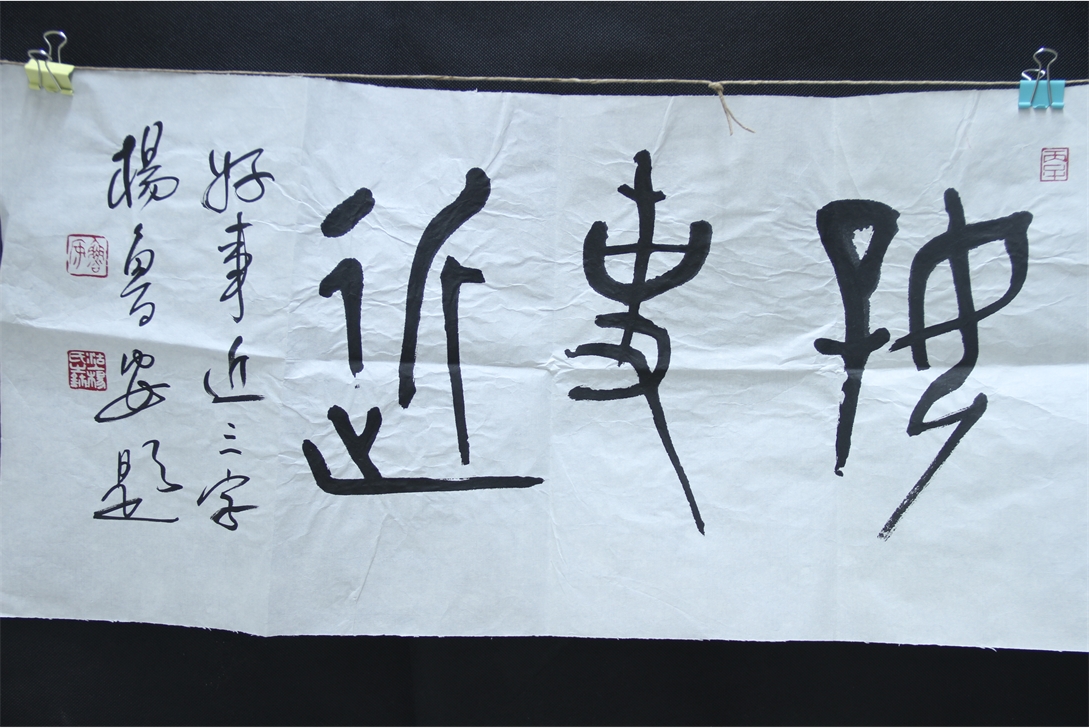 好事近
好事近三字
楊魯安題